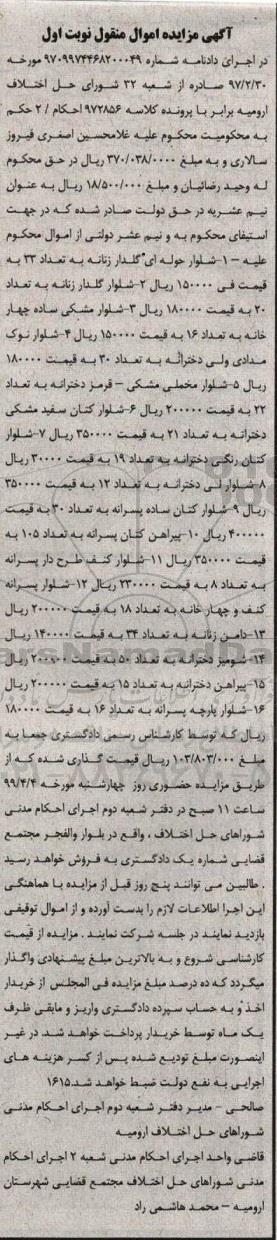 آگهی مزایده اموال منقول نوبت اول
در اجرای دادنامه شماره ۹۷۰۹۹۷۴۴۶۸۲۰۰۰۴۹ مورخه
۹۷/۲/۳۰ صادره از شعبه ۳۲ شورای حل اختلاف
ارومیه برابر با پرونده کلاسه ۹۷۲۸۵۶ احکام / ۲ حکم
به محکومیت محکوم علیه غلامحسین اصغری فیروز
سالاری و به مبلغ ۳۷۰/۰۳۸/۰۰۰۰ ریال در حق محکوم
له وحید رضائیان و مبلغ ۱۸/۵۰۰/۰۰۰ ریال به عنوان
نیم عشریه در حق دولت صادر شده که در جهت
استیفای محکوم به و نیم عشر دولتی از اموال محکوم
علیه – ۱-شلوار حوله ای گلدار زنانه به تعداد ۳۳ به
قیمت فی ۱۵۰۰۰۰ ریال ۲-شلوار گلدار زنانه به تعداد
۲۰ به قیمت ۱۸۰۰۰۰ ریال ۳-شلوار مشکی ساده چهار
خانه به تعداد ۱۶ به قیمت ۱۵۰۰۰۰ ریال ۴-شلوار نوک
مدادی ولی دخترانه به تعداد ۳۰ به قیمت ۱۸۰۰۰۰
ریال ۵-شلوار مخملی مشکی – قرمز دخترانه به تعداد
۲۲ به قیمت ۲۰۰۰۰۰ ریال ۶-شلوار کتان سفید مشکی
دخترانه به تعداد ۲۱ به قیمت ۳۵۰۰۰۰ ریال ۷-شلوار
کتان رنگی دخترانه به تعداد ۱۹ به قیمت ۳۰۰۰۰ ریال
۸-شلوار لی دخترانه به تعداد ۱۲ به قیمت ۳۵۰۰۰۰
ریال ۹-شلوار کتان ساده پسرانه به تعداد ۳۰ به قیمت
۴۰۰۰۰۰ ریال ۱۰-پیراهن کتان پسرانه به تعداد ۱۰۵ به
قیمت ۳۵۰۰۰۰ ریال ۱۱-شلوار کنف طرح دار پسرانه
به تعداد ۸ به قیمت ۲۳۰۰۰۰ ریال ۱۲-شلوار پسرانه
کنف و چهار خانه به تعداد ۱۸ به قیمت ۲۰۰۰۰۰ ریال
۱۳-دامن زنانه به تعداد ۳۴ به قیمت ۱۴۰۰۰۰ ریال
۱۴-شومیز دخترانه به تعداد ۵۰ به قیمت ۲۰۰۰۰۰ ریال
۱۵-پیراهن دخترانه به تعداد ۱۵ به قیمت ۲۰۰۰۰۰ ریال
۱۶-شلوار پارچه پسرانه به تعداد ۱۶ به قیمت ۱۸۰۰۰۰
ریال که توسط کارشناس رسمی دادگستری جمعا به
مبلغ ۱۰۳/۸۰۳/۰۰۰ ریال قیمت گذاری شده که از
طریق مزایده حضوری روز چهارشنبه مورخه ۹۹/۴/۴
ساعت ۱۱ صبح در دفتر شعبه دوم اجرای احکام مدنی
شوراهای حل اختلاف ، واقع در بلوار والفجر مجتمع
قضایی شماره یک دادگستری به فروش خواهد رسید
. طالبین می توانند پنج روز قبل از مزایده با هماهنگی
این اجرا اطلاعات لازم را بدست آورده و از اموال توقیفی
بازدید نمایند در جلسه شرکت نمایند . مزایده از قیمت
کارشناسی شروع و به بالاترین مبلغ پیشنهادی واگذار
میگردد که ده درصد مبلغ مزایده فی المجلس از خریدار
اخذ و به حساب سپرده دادگستری واریز و مابقی ظرف
یک ماه توسط خریدار پرداخت خواهد شد. در غیر
اینصورت مبلغ تودیع شده پس از کسر هزینه های
اجرایی به نفع دولت ضبط خواهد شد.۱۶۱۵
صالحی – مدیر دفتر شعبه دوم اجرای احکام مدنی
شوراهای حل اختلاف ارومیه
قاضی واحد اجرای احکام مدنی شعبه ۲ اجرای احکام
مدنی شوراهای حل اختلاف مجتمع قضایی شهرستان
ارومیه – محمد هاشمی راد